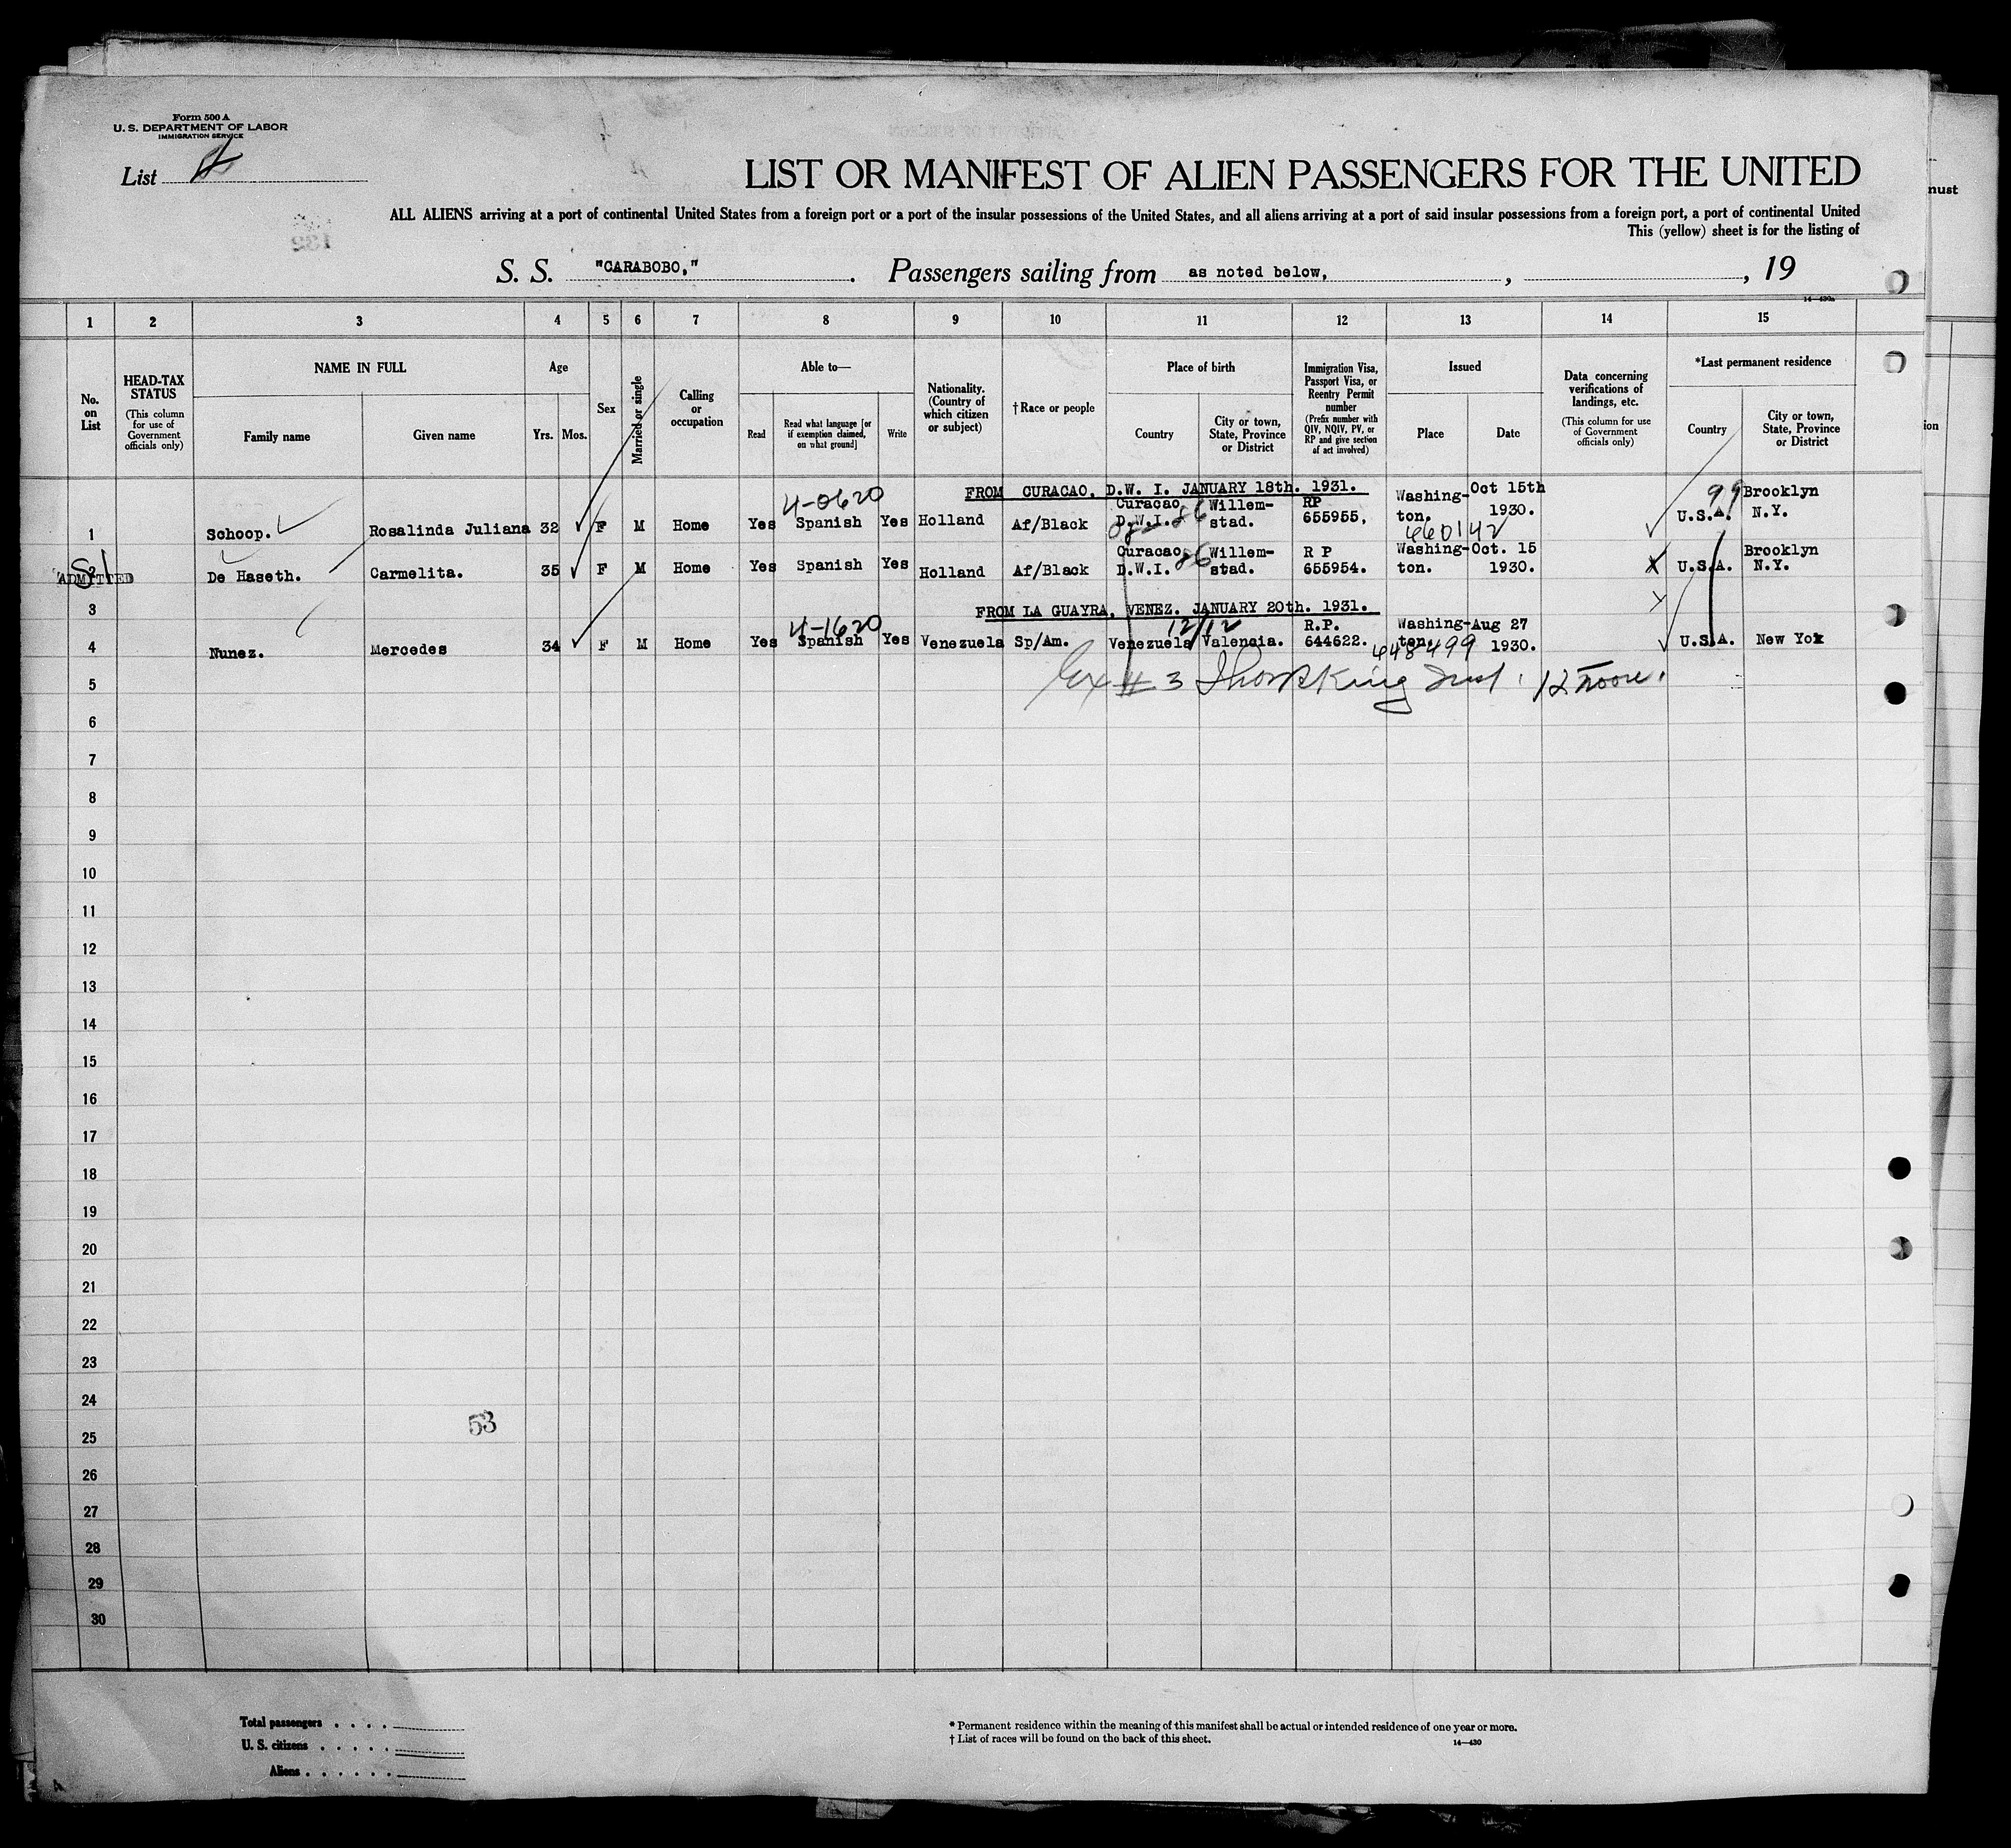 Form 500 A
U. S. DEPARTMENT OF LABOR
IMMIGRATION SERVICE
List
LIST OR MANIFEST OF ALIEN PASSENGERS FOR THE UNITED
ALL ALIENS arriving at a port of continental United States from a foreign port or a port of the insular possessions of the United States, and all aliens arriving at a port of said insular possessions from a foreign port, a port of continental United
This (yellow) sheet is for the listing of
132
S. S. "CARABOBO," . Passengers sailing from as noted below, , , 19
14—430a
1 2 3 4 5 6 7 8 9 10 11 12 13 14 15
No. on List
HEAD-TAX STATUS (This column for use of Government officials only)
NAME IN FULL
Family name Given name
Age
Yrs. Mos.
Sex
Married or single
Calling or occupation
Able to—
Read Read what language [or if exemption claimed, on what ground] Write
Nationality. (Country of which citizen or subject)
†Race or people
Place of birth
Country City or town, State, Province or District
Immigration Visa, Passport Visa, or Reentry Permit number (Prefix number with QIV, NQIV, PV, or RP and give section of act involved)
Issued
Place Date
Data concerning verifications of landings, etc. (This column for use of Government officials only)
*Last permanent residence
Country City or town, State, Province or District
FROM CURACAO, D.W. I. JANUARY 18th. 1931.
4-0620
1 Schoop. Rosalinda Juliana 32 F M Home Yes Spanish Yes Holland Af/Black Curacao D.W.I. 86 Willem-stad. RP 655955, Washing-ton. Oct 15th 1930. 660142 99 U.S.A. Brooklyn N.Y.
ADMITTED
SI
2 De Haseth. Carmelita. 35 F M Home Yes Spanish Yes Holland Af/Black Curacao D.W.I. 86 Willem-stad. R P 655954. Washing-ton. Oct. 15 1930. U.S.A. Brooklyn N.Y.
3 FROM LA GUAYRA, VENEZ. JANUARY 20th. 1931.
4-1620 12/12
4 Nunez. Mercedes 34 F M Home Yes Spanish Yes Venezuela Sp/Am. Venezuela Valencia. R.P. 644622. Washing-ton. Aug 27 1930. 648499 U.S.A. New Yok
5 # 3
6
7
8
9
10
11
12
13
14
15
16
17
18
19
20
21
22
23
24
53
25
26
27
28
29
30
Total passengers
U. S. citizens
Aliens
* Permanent residence within the meaning of this manifest shall be actual or intended residence of one year or more.
† List of races will be found on the back of this sheet.
14—430
nust
ion